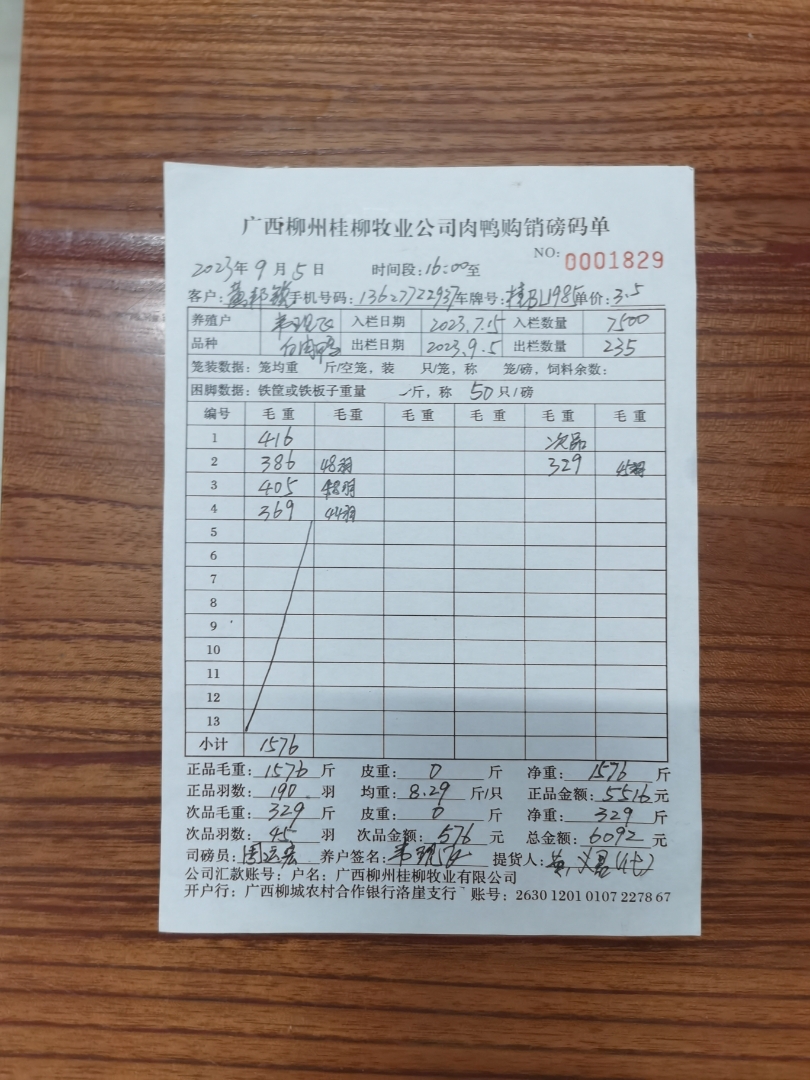 广西柳州桂柳牧业公司肉鸭购销磅码单
NO: 0001829
2023年 9 月 5 日 时间段: 16:00至
客户: 黄邦 手机号码: 13627722937 车牌号: 桂BL1985 单价: 3.5
养殖户 韦现 入栏日期 2023.7.15 入栏数量 7500
品种 白肉鸭 出栏日期 2023.9.5 出栏数量 235
笼装数据: 笼均重 斤/空笼, 装 只/笼, 称 笼/磅, 饲料余数:
困脚数据: 铁筐或铁板子重量 斤, 称 50 只/磅
编号 毛重 毛重 毛重 毛重 毛重 毛重
1 416 次品
2 386 48羽 329 45羽
3 405 48羽
4 369 44羽
5
6
7
8
9
10
11
12
13
小计 1576
正品毛重: 1576 斤 皮重: 0 斤 净重: 1576 斤
正品羽数: 190 羽 均重: 8.29 斤/只 正品金额: 5516 元
次品毛重: 329 斤 皮重: 0 斤 净重: 329 斤
次品羽数: 45 羽 次品金额: 576 元 总金额: 6092 元
司磅员: 周 宏 养户签名: 韦现 提货人: (代)
公司汇款账号: 户名: 广西柳州桂柳牧业有限公司
开户行: 广西柳城农村合作银行洛崖支行 账号: 2630 1201 0107 2278 67